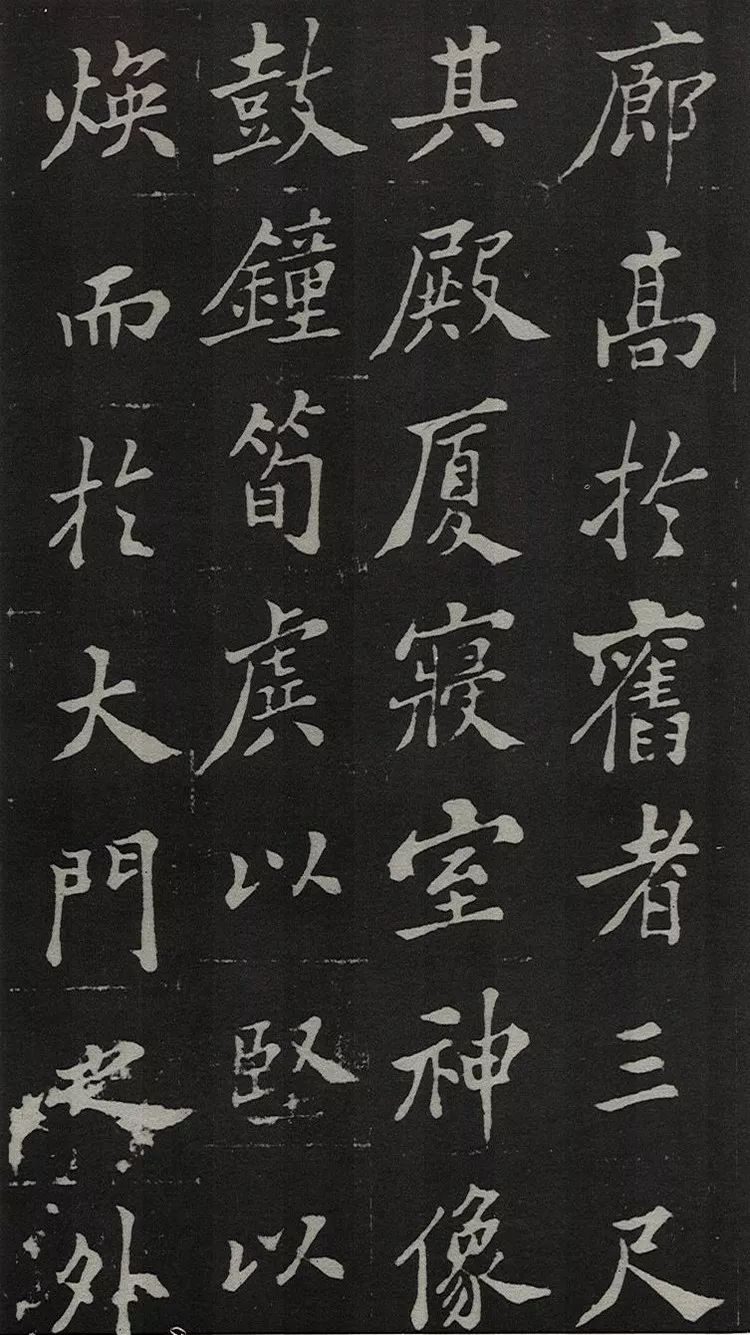 廊髙於舊者三尺
其殿厦寢室神像
鼓鐘筍虡以堅以
煥而於大門之外